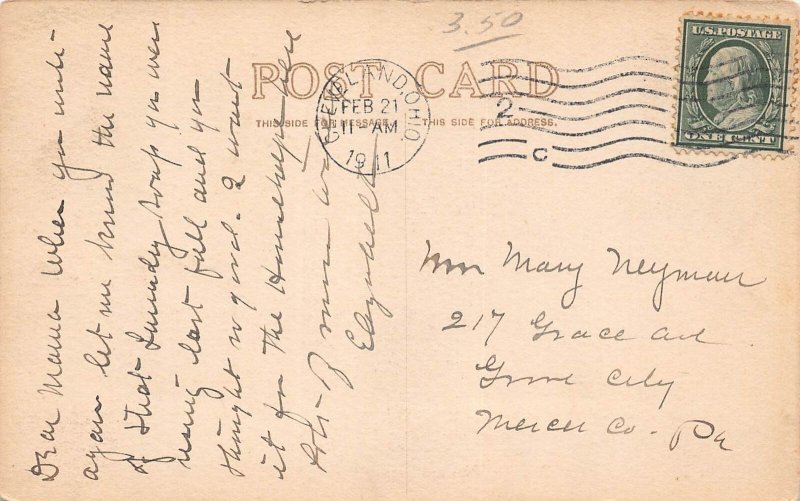 3.50
U.S. POSTAGE
ONE CENT
POST CARD
THIS SIDE FOR MESSAGE.
THIS SIDE FOR ADDRESS.
CLEVELAND, OHIO.
FEB 21
11-AM
1911
2
C
Dear Mama When you write
again let me know the name
of that laundry soap you were
using last fall and you
thought so good. I want
it for the
Elizabeth
Mrs Mary Neyman
217 Grace Ave
Grove City
Mercer Co - Pa